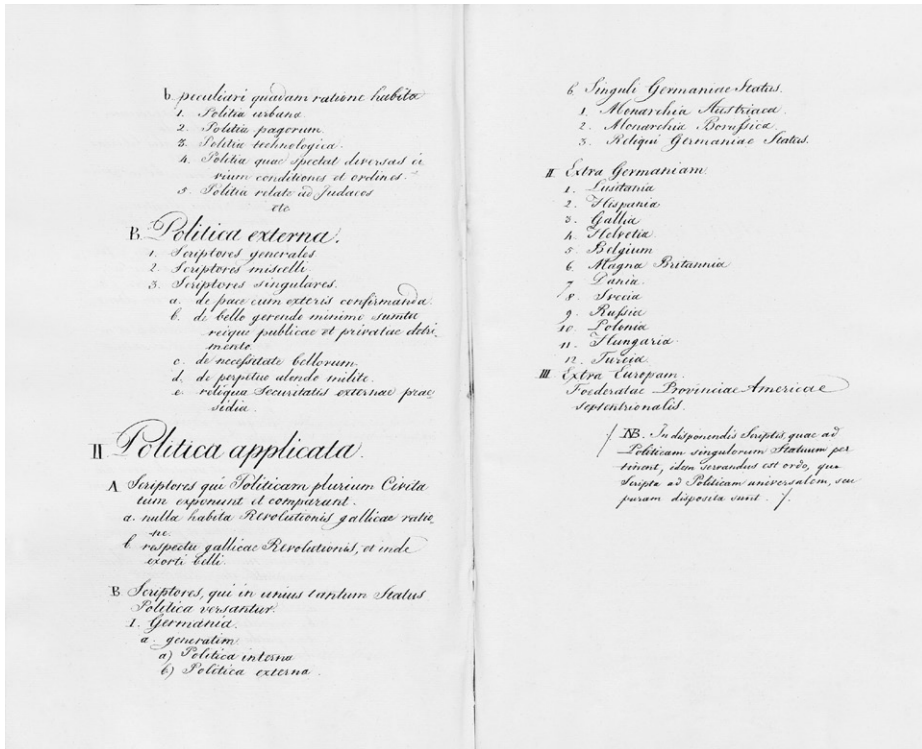 b. peculiari quadam ratione habita
1. Politia urbana.
2. Politia pagorum.
3. Politia technologica.
4. Politia quae spectat diversas ci
vium conditiones et ordines.
5. Politia relate ad Judaeos
etc
B. Politica externa.
1. Scriptores generales
2. Scriptores miscelli.
3. Scriptores singulares.
a. de pace cum exteris confirmanda.
b. de bello gerendo minimo sumtu
reique publicae et privatae detri-
mento.
c. de necessitate bellorum.
d. de perpetuo alendo milite.
e. reliqua Securitatis externae prae-
sidia.
II Politica applicata.
A Scriptores qui Politicam plurium Civita
tum exponunt et comparant.
a. nulla habita Revolutionis gallicae ratio-
ne.
b. respectu gallicae Revolutionis, et inde
exorti belli.
B Scriptores, qui in unius tantum Status
Politica versantur.
I. Germania.
a. generatim
a) Politica interna
b) Politica externa.
b. Singuli Germaniae Status.
1. Monarchia Austriaca.
2. Monarchia Borussica.
3. Reliqui Germaniae Status.
II. Extra Germaniam.
1. Lusitania
2. Hispania
3. Gallia
4. Helvetia
5. Belgium
6. Magna Britannia
7. Dania.
8. Svecia
9. Russia
10. Polonia
11. Hungaria.
12. Turcia.
III. Extra Europam.
Foederatae Provinciae Americae
septentrionalis.
/ NB. In disponendis Scriptis, quae ad
Politicam singulorum Statuum per
tinent, idem servandus est ordo, quo
Scripta ad Politicam universalem, seu
puram disposita sunt. /.